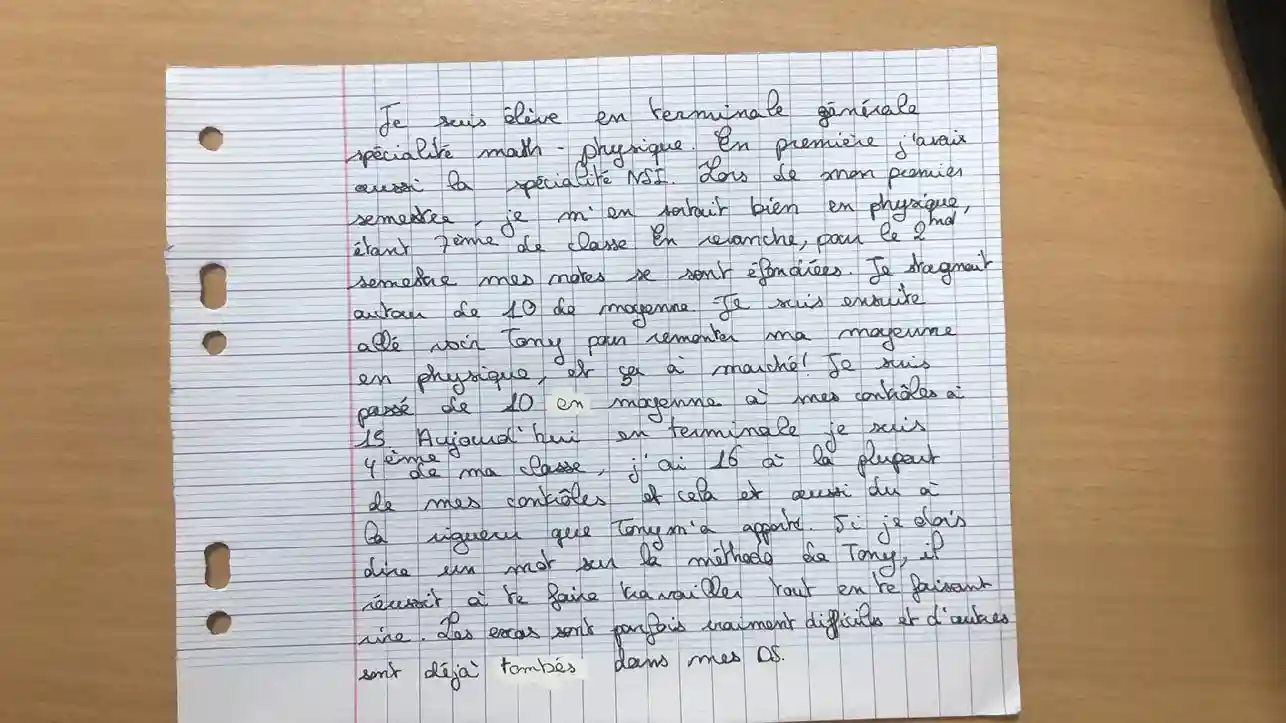 Je suis élève en terminale générale
spécialité math - physique. En première j'avais
aussi la spécialité NSI. Lors de mon premier
semestre, je m'en sortait bien en physique,
étant 7ème de classe En revanche, pour le 2nd
semestre mes notes se sont éfondrées. Je stagnait
autour de 10 de moyenne. Je suis ensuite
allé voir Tony pour remonter ma moyenne
en physique, et ça à marché! Je suis
passé de 10 en moyenne à mes contrôles à
15. Aujourd'hui en terminale je suis
4ème de ma classe, j'ai 16 à la plupart
de mes contrôles et cela et aussi du à
la rigueur que Tony m'a apporté. Si je dois
dire un mot sur la méthode de Tony, il
réussit à te faire travailler tout en te faisant
rire. Les exos sont parfois vraiment difficiles et d'autres
sont déjà tombés dans mes DS.